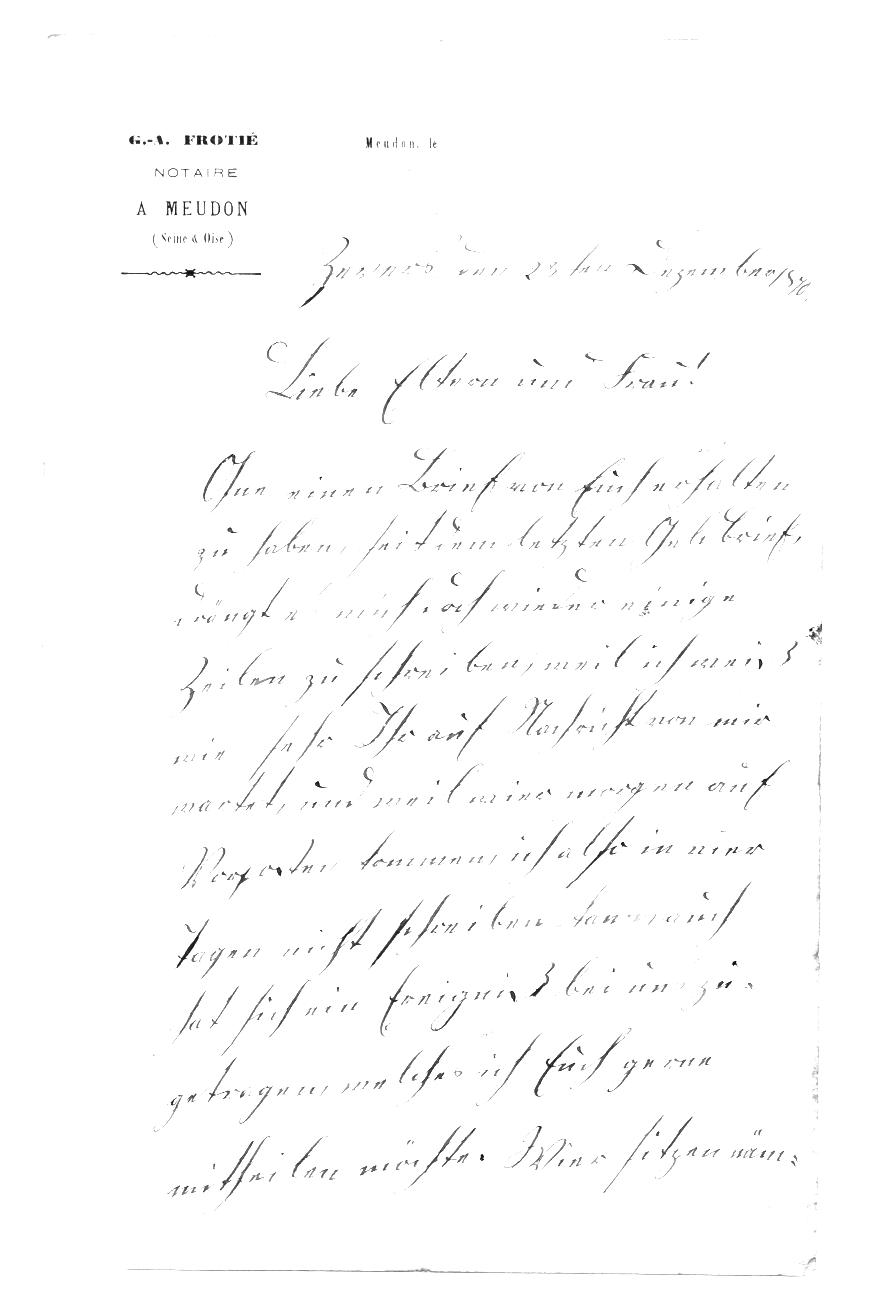 G.-A. FROTIÉ
NOTAIRE
A MEUDON
(Seine & Oise)
Meudon, le
den 28ten Dezember 1870
Liebe Eltern und Frau!
One einen Brief von Euch erhalten
zu haben, seit dem letzten Geldbrief,
drängt es mich doch wieder einige
Zeilen zu schreiben, weil ich weiß
wie sehr Ihr auf Nachricht von mir
wartet, und weil wier morgen auf
Vorposten kommen, ich also in vier
Tagen nicht schreiben kann, auch
hat sich ein Ereigniß bei uns zu-
getragen, welches ich Euch gerne
mittheilen möchte. Wier sitzen näm-